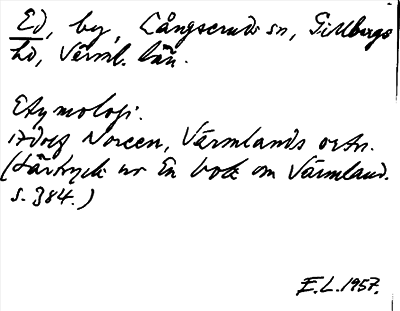 Ed, by, Långseruds sn, Gillbergs
hd, Värml. län.
Etymologi.
Adolf Noreen, Värmlands ortn.
(Särtryck ur En bok om Värmland.
s. 384.)
E.L. 1957.